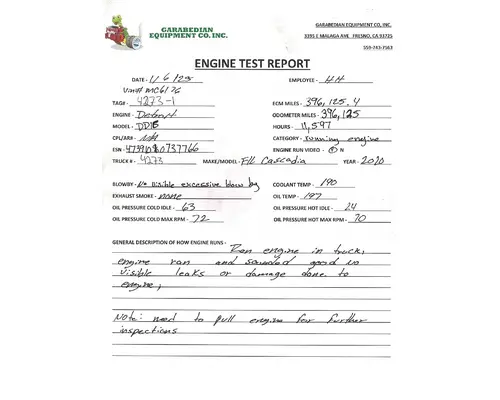 GARABEDIAN
EQUIPMENT CO, INC.
GARABEDIAN EQUIPMENT CO, INC.
3395 E MALAGA AVE FRESNO, CA 93725
559-243-7563
ENGINE TEST REPORT
DATE - 11/6/25 EMPLOYEE - HH
MC6176
TAG# - 4273-1 ECM MILES - 396,125.4
ENGINE - Detroit ODOMETER MILES - 396,125
MODEL - DD15 HOURS - 11,597
CPL/AR# - NA CATEGORY - running engine
ESN - ENGINE RUN VIDEO - Y N
TRUCK # - 4273 MAKE/MODEL - F/L Cascadia YEAR - 2020
BLOWBY - No Visible excessive blow by COOLANT TEMP - 190
EXHAUST SMOKE - none OIL TEMP - 197
OIL PRESSURE COLD IDLE - 63 OIL PRESSURE HOT IDLE - 24
OIL PRESSURE COLD MAX RPM - 72 OIL PRESSURE HOT MAX RPM - 70
GENERAL DESCRIPTION OF HOW ENGINE RUNS - Ran engine in truck,
engine ran and sounded good no
visible leaks or damage done to
engine,
Note: need to pull engine for further
inspections